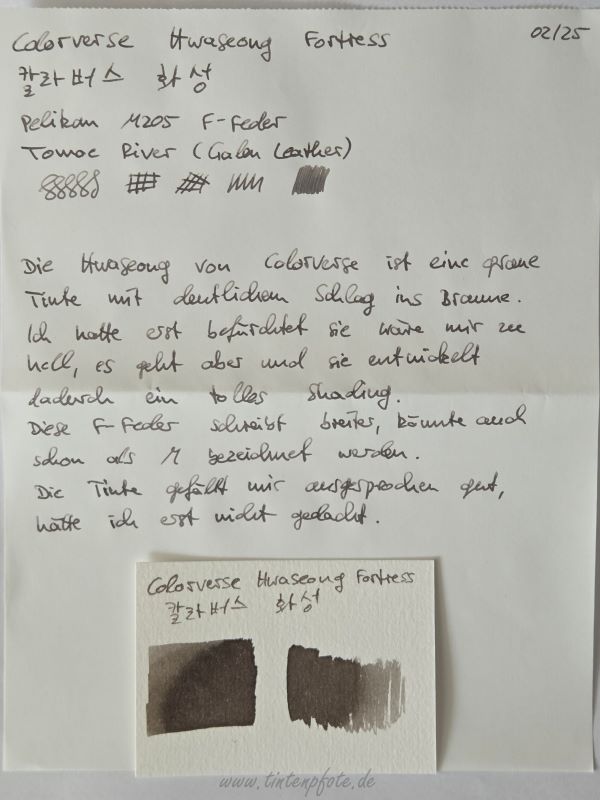 Colorverse Hwaseong Fortress 02/25
컬러버스 화성
Pelikan M205 F-Feder
Tomoe River (Galen Leather)
Die Hwaseong von Colorverse ist eine graue
Tinte mit deutlichem Schlag ins Braune.
Ich hatte erst befürchtet sie wäre mir zu
hell, es geht aber und sie entwickelt
dadurch ein tolles Shading.
Diese F-Feder schreibt breiter, könnte auch
schon als M bezeichnet werden.
Die Tinte gefällt mir ausgesprochen gut,
hätte ich erst nicht gedacht.
Colorverse Hwaseong Fortress
컬러버스 화성
www.tintenpfote.de